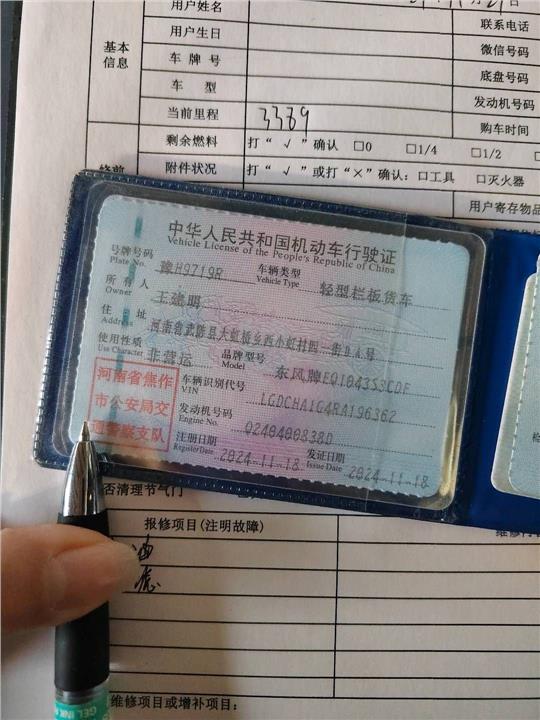 用户姓名
联系电话
用户生日
微信号码
基本信息
车牌号
底盘号
车型
发动机号码
当前里程 3389
购车时间
剩余燃料 打“√”确认 □0 □1/4 □1/2
附件状况 打“√”或打“×”确认：□工具 □灭火器
用户寄存物品
中华人民共和国机动车行驶证
Vehicle License of the People's Republic of China
号牌号码 豫H9719R 车辆类型 轻型栏板货车
Plate No. Vehicle Type
所有人 王建明
Owner
住址 河南省武陟县大虹桥乡西小虹村四一街
Address
使用性质 非营运 品牌型号 东风牌EQ1043S3CDF
Use Character Model
河南省焦作
市公安局交
通警察支队
车辆识别代号 LGDCHA1G4RA196362
VIN
发动机号码 0240400838D
Engine No.
注册日期 2024-11-18 发证日期 2024-11-18
Register Date Issue Date
否清理节气门
报修项目(注明故障)
油
维修项目或增补项目：
GEL INK